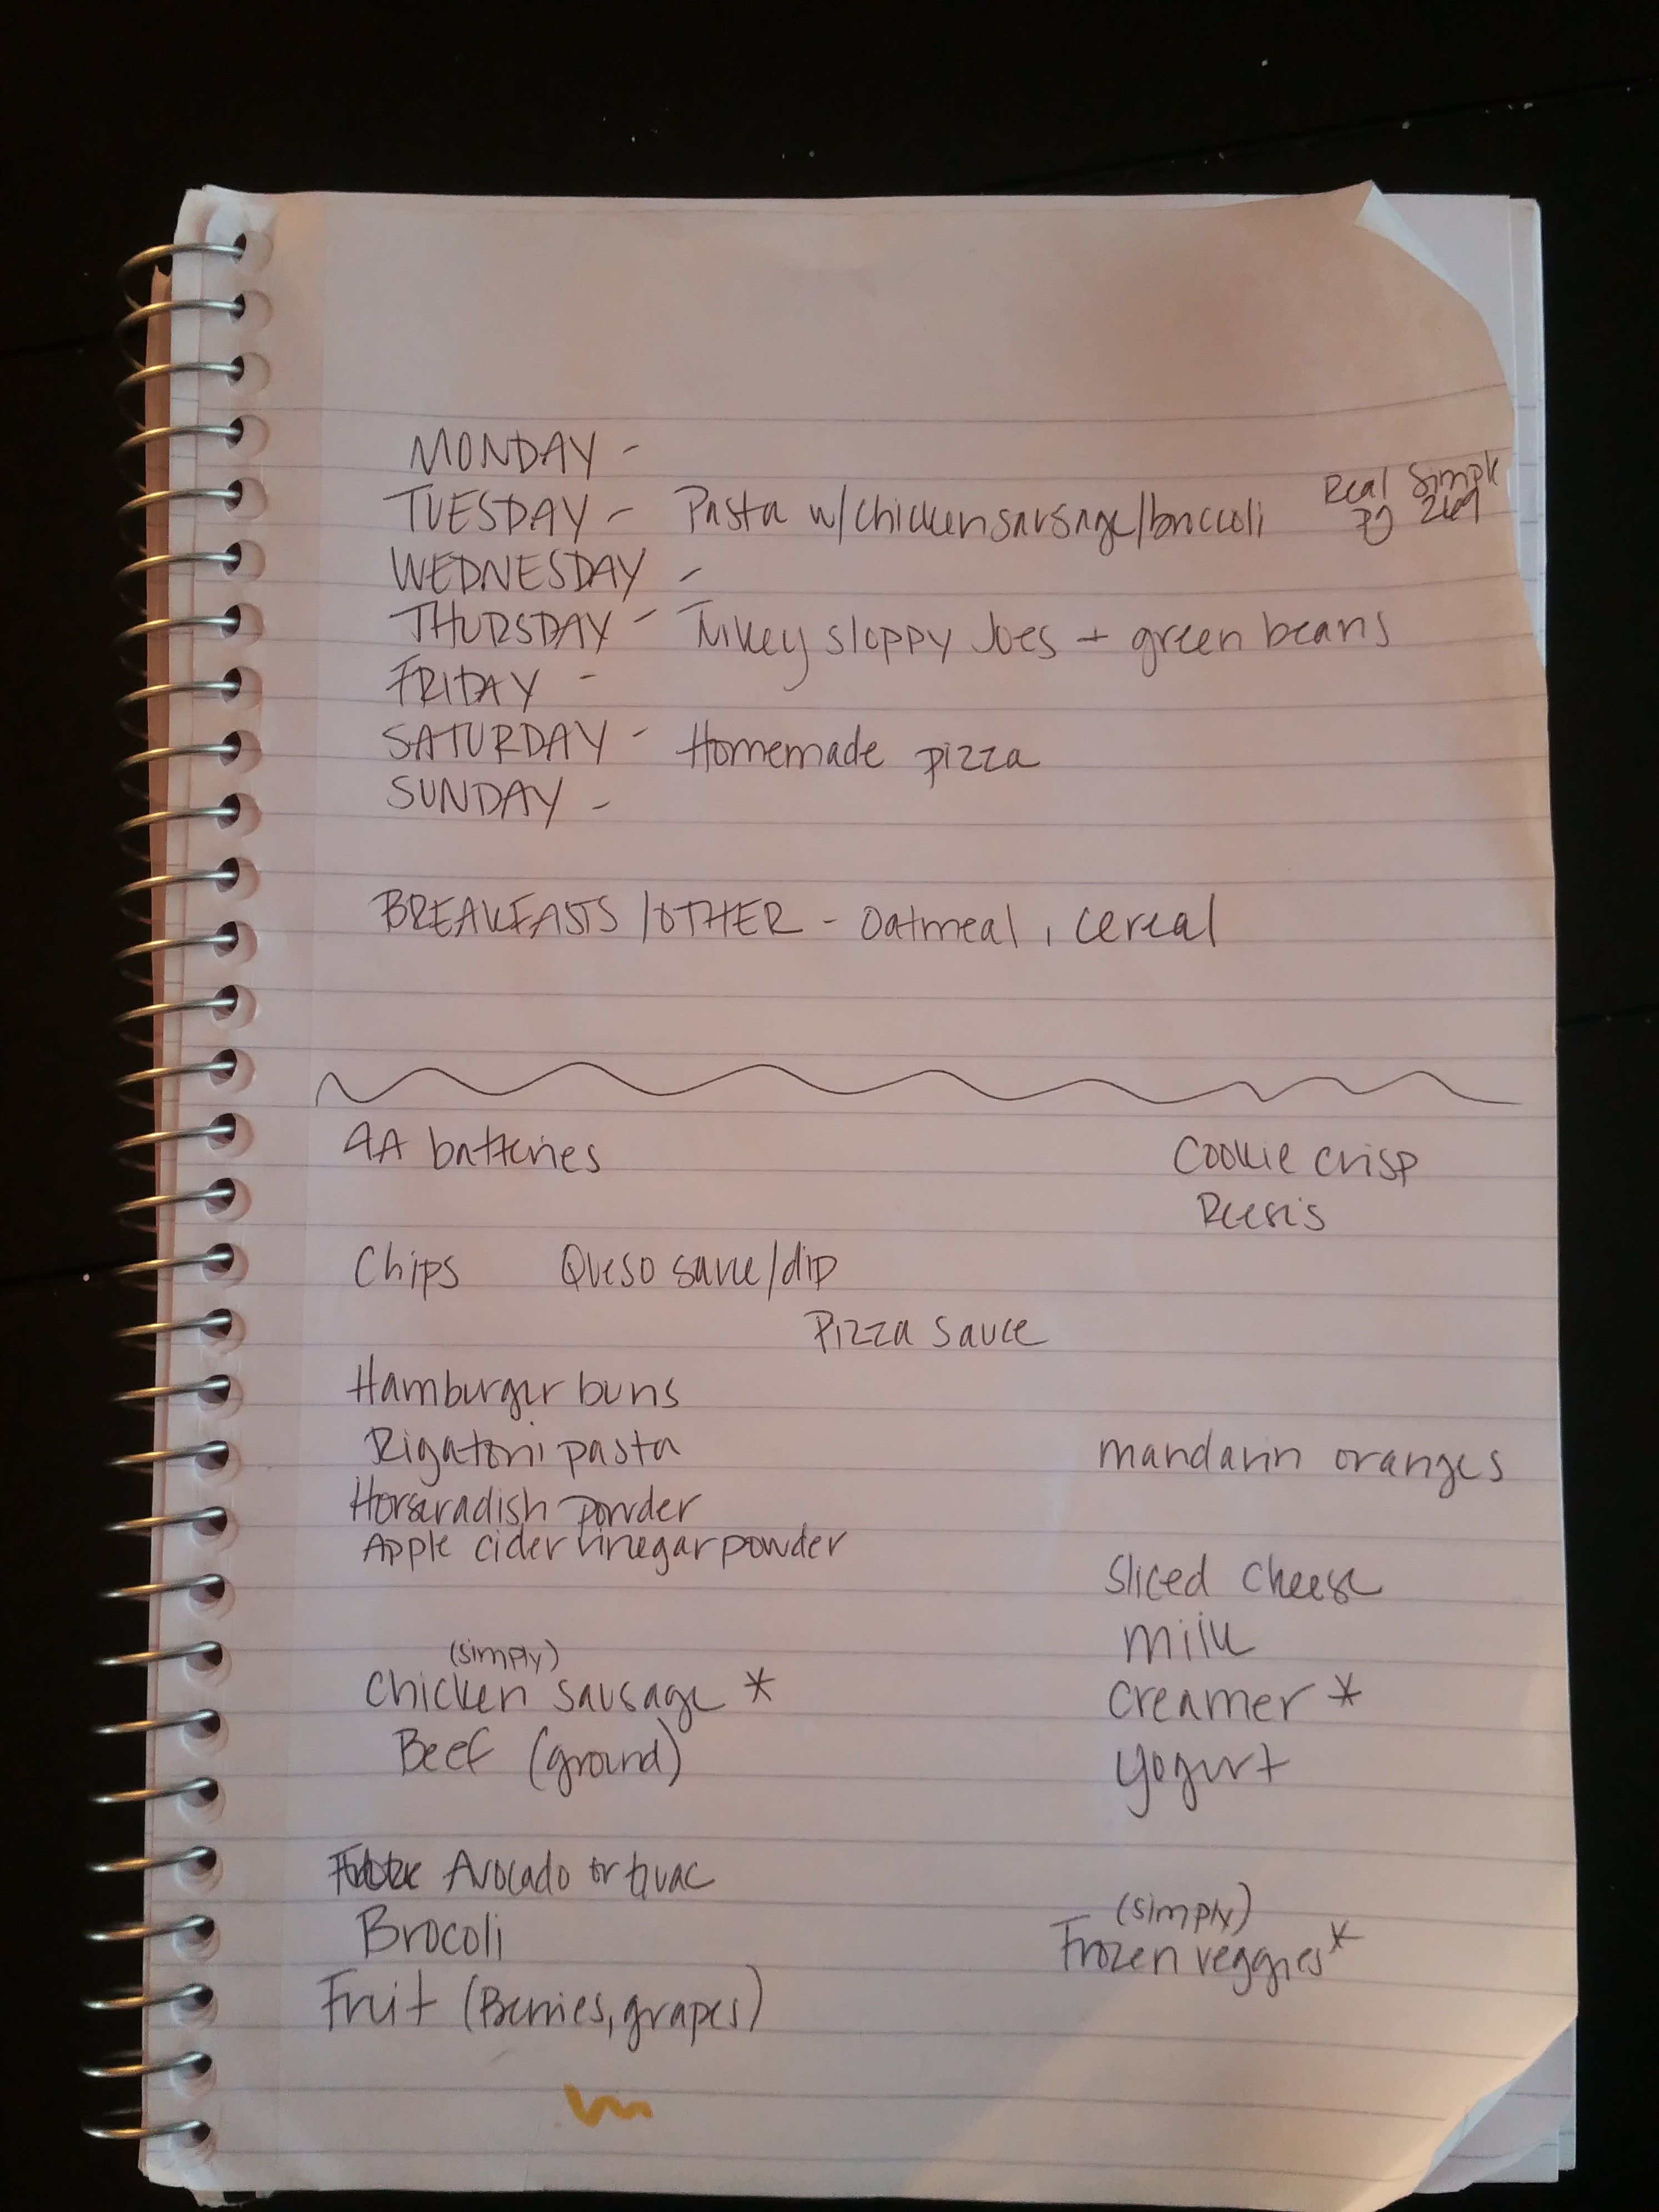 MONDAY -
TUESDAY - Pasta w/chicken sausage/broccoli Real Simple
pg 269
WEDNESDAY -
THURSDAY - Turkey sloppy Joes + green beans
FRIDAY -
SATURDAY - Homemade pizza
SUNDAY -
BREAKFASTS/OTHER - Oatmeal, cereal
AA batteries
Cookie crisp
Reese's
Chips Queso sauce/dip
Pizza sauce
Hamburger buns
Rigatoni pasta
mandarin oranges
Horseradish powder
Apple cider vinegar powder
Sliced cheese
milk
(simply)
Chicken sausage *
creamer *
Beef (ground)
yogurt
Avocado or Guac
Brocoli
(simply)
Frozen veggies*
Fruit (Berries, grapes)